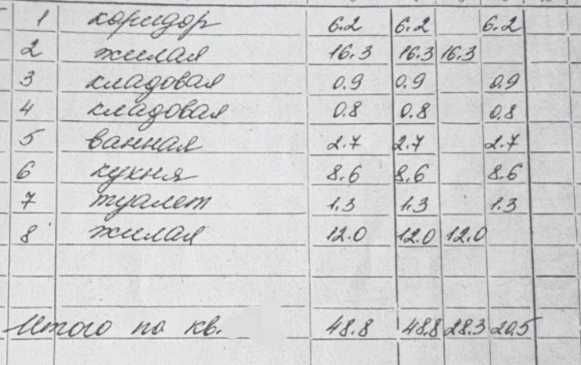 1 коридор 6.2 6.2 6.2
2 жилая 16.3 16.3 16.3
3 кладовая 0.9 0.9 0.9
4 кладовая 0.8 0.8 0.8
5 ванная 2.7 2.7 2.7
6 кухня 8.6 8.6 8.6
7 туалет 1.3 1.3 1.3
8 жилая 12.0 12.0 12.0
Итого по кв. 48.8 48.8 28.3 20.5